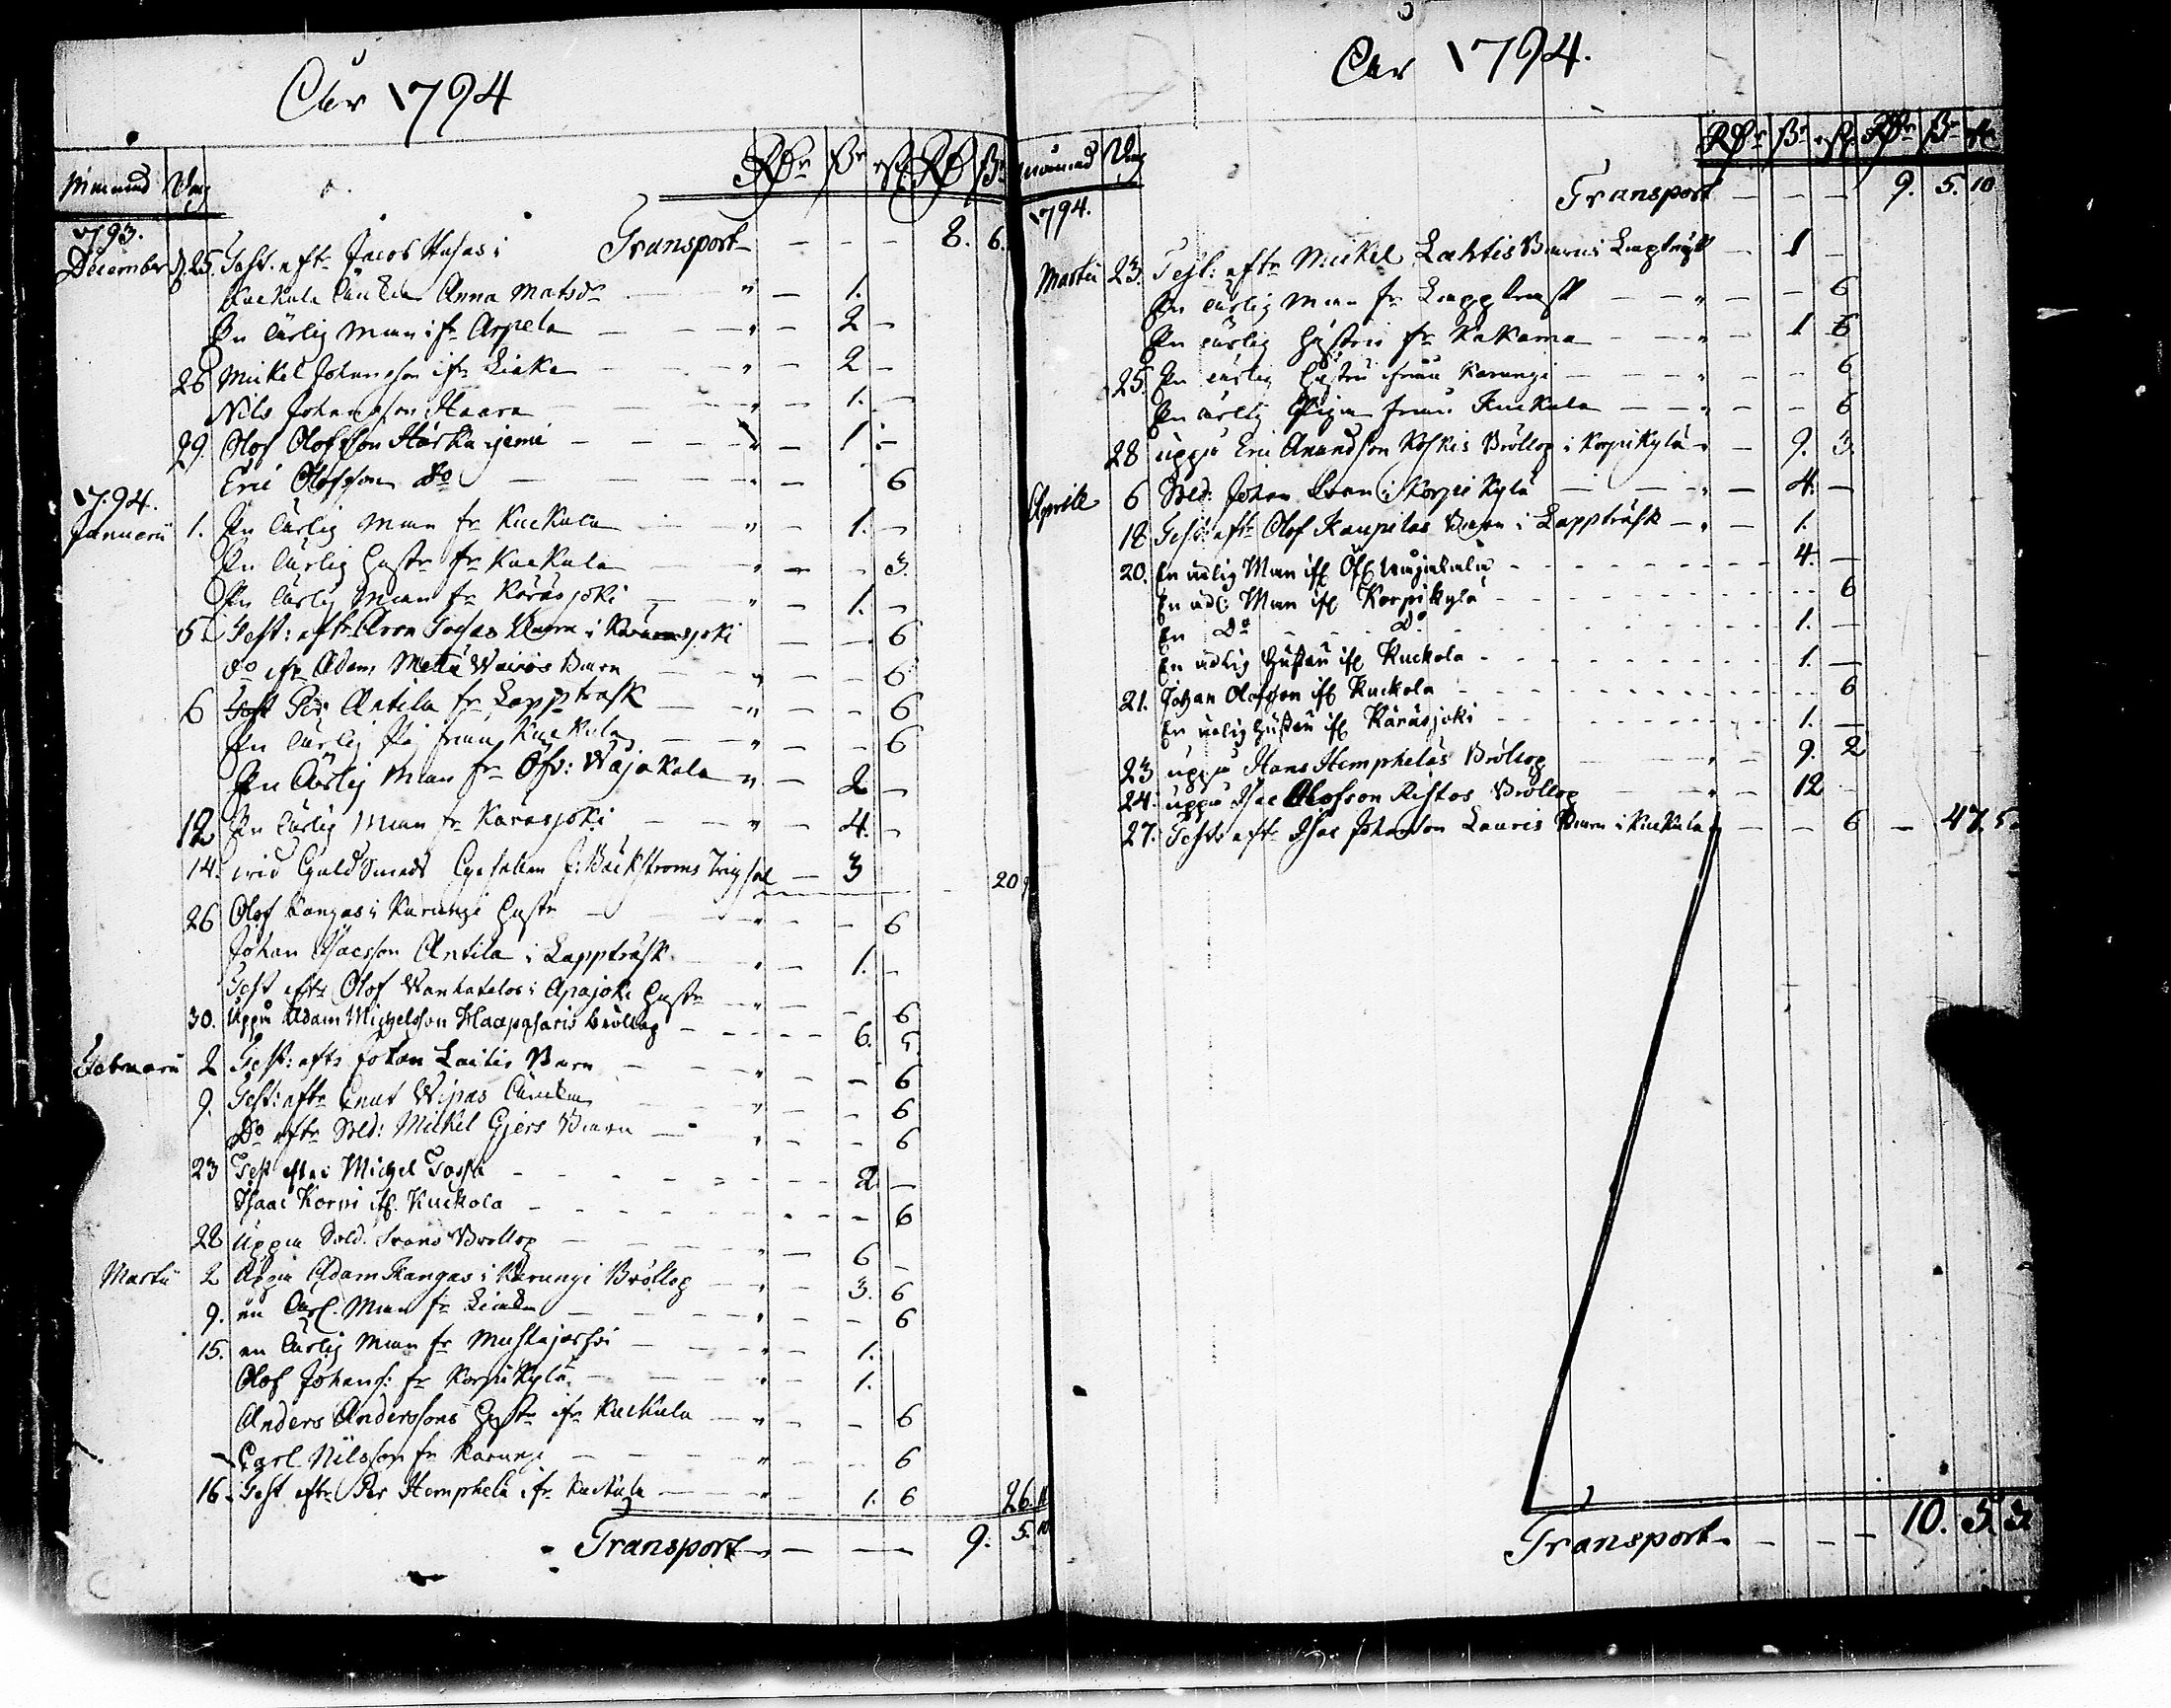 Åhr 1794
Månad Dag Rdr ß rst Rd ß
1793. Transport - - - 8. 6.
December d. 25. Test. eftr Jacob Husas i
Kuckula Änckia Anna Matsdr " - 1.
En ärlig Man ifr Arpela - 2 -
26 Mickel Johansson ifr Liaka - 2 -
Nils Johansson Haara - 1. -
29 Olof Olofsson Harkaijemi - 1. -
Eric Olofsson do - 6
1794.
Januarii 1. En ärlig Man fr Kuckula " - 1. -
En ärlig Hustr fr Kuckula - 3.
En ärlig Man fr Karasjoki " - 1. -
5. Test: eftr Aron Barn i Karasjoki - 6
do eftr Adam Barn - 6
6 Test Per Antila fr Lappträsk - 6
En ärlig Pig från Kuckula - 6
En ärlig Man fr Öfv: Wojakala - 2 -
12 En ärlig Man fr Karasjoki " - 4. -
14. wid Guld Smeds Gesällen J: Bäckströms - 3 20
26 Olof Kangas i Karungi Hustr - 6
Johan Isacsson Antila i Lappträsk - 1. -
Test eftr Olof i Apajoki Hustr - 6
30. Uppå Adam Michelsson Haapasaris Bröllop - 6. 5.
Februarii 2 Test: eftr Johan Laitis Barn - 6
9. Test: eftr Cnut Wipas Änckia - 6
Do eftr Sold: Mickel Gjers Barn - 6
23 Test efter Michel - 2 -
Isaac Korpi ifr Kuckola - 6
22 Uppå Sold. Svans Bröllop - 6 -
Martii 2 Uppå Adam Kangas i Karungi Bröllop - 3. 6
9. en ärl. Man fr Liacka - 6
15. en ärlig Man fr Mustajärfvi - 1.
Olof Johans: fr Korpikylä - 1.
Anders Anderssons Hustr ifr Kuckula - 6
Carl Nilsson fr Karungi - 6
16. Test eftr Per Hemphelä ifr Kuckula - 1. 6 26. 11
Transport - 9. 5. 10
Åhr 1794.
Månad Dag Rdr ß rst Rdr ß rst
Transport - - - 9. 5. 10
1794.
Martii 23. Test: eftr Mickel Lahtis Barn i Lappträsk - 1 -
En ärlig Man fr Lappträsk - 6
En ärlig Hustru fr Kakama - 1 6
25. En ärlig Hustru ifrån Karungi - 6
En ärlig Piga från Kuckula - 6
28 uppå Eric Anundson Koskis Bröllop i Korpikylä - 9. 3.
Aprill 6 Sold: Johan i Korpikylä - 4. -
18 Test: eftr Olof Kaupilas Barn i Lappträsk - 1.
20. En ärlig Man ifr Öfr Wojakala - 4. -
En ärl: Man ifr Korpikylä - 6
En Do Do - 1. -
En ärlig Hustru ifr Kuckola - 1. -
21. Johan Olofsson ifr Kuckola - 6
En ärlig Hustru ifr Karasjoki - 1. -
23 uppå Hans Hempheläs Bröllop - 9. 2
24. uppå Isac Olofsson Ristos Bröllop - 12 -
27. Test: eftr Isac Johansson Lauris Barn i Kuckula - 6 - 47. 5
Transport - - - 10. 5.